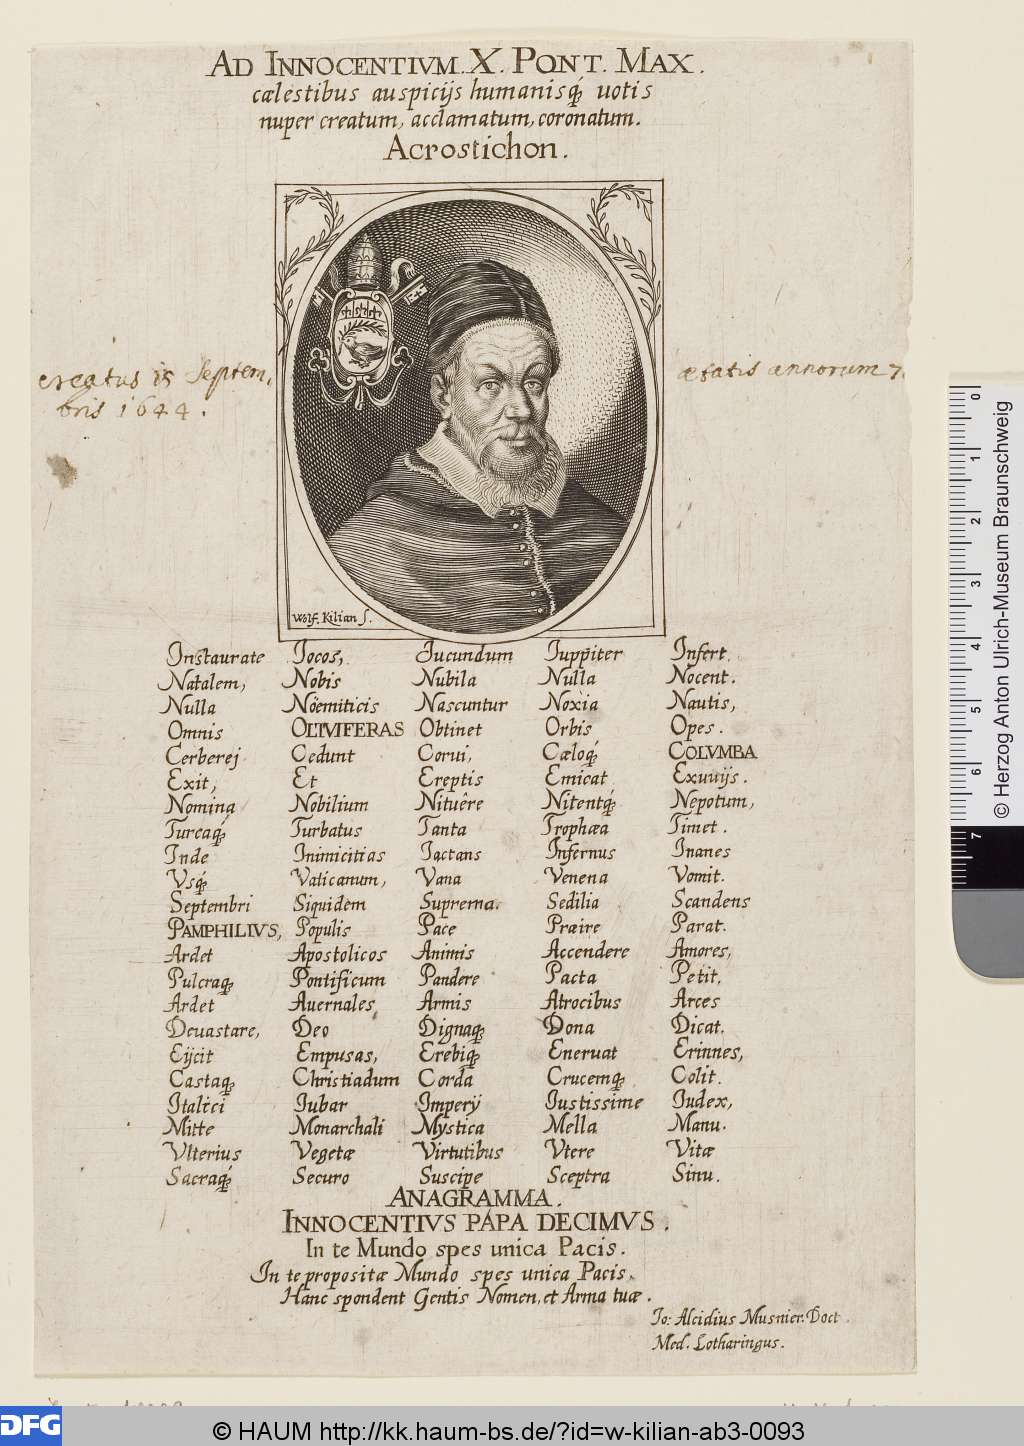 AD INNOCENTIVM. X. PONT. MAX.
cælestibus auspicijs humanisq́; uotis
nuper creatum, acclamatum, coronatum.
Acrostichon.
creatus 15 Septem,
bris 1644.
ætatis annorum 7
Wolf. Kilian f.
Instaurate Jocos, Jucundum Iuppiter Infert.
Natalem, Nobis Nubila Nulla Nocent.
Nulla Nöemiticis Nascuntur Noxia Nautis,
Omnis OLIVIFERAS Obtinet Orbis Opes.
Cerberej Cedunt Corui, Cæloq́; COLVMBA
Exit, Et Ereptis Emicat Exuuijs.
Nomina Nobilium Nituêre Nitentq́; Nepotum,
Turcaq́; Turbatus Tanta Trophæa Timet.
Inde Inimicitias Iactans Infernus Inanes
Vsq́; Vaticanum, Vana Venena Vomit.
Septembri Siquidem Suprema. Sedilia Scandens
PAMPHILIVS, Populis Pace Præire Parat.
Ardet Apostolicos Animis Accendere Amores,
Pulcraq; Pontificum Pandere Pacta Petit,
Ardet Auernales Armis Atrocibus Arces
Deuastare, Deo Dignaq; Dona Dicat.
Eijcit Empusas, Erebiq; Eneruat Erinnes,
Castaq; Christiadum Corda Crucemq; Colit.
Italici Iubar Imperij Iustissime Iudex,
Mitte Monarchali Mystica Mella Manu.
Vlterius Vegetæ Virtutibus Vtere Vitæ
Sacraq́; Securo Suscipe Sceptra Sinu.
ANAGRAMMA.
INNOCENTIVS PAPA DECIMVS.
In te Mundo spes unica Pacis.
In te propositæ Mundo spes unica Pacis,
Hanc spondent Gentis Nomen, et Arma tuæ.
Jo: Alcidius Musnier. Doct.
Med. Lotharingus.
0 1 2 3 4 5 6 7
© Herzog Anton Ulrich-Museum Braunschweig
DFG
© HAUM http://kk.haum-bs.de/?id=w-kilian-ab3-0093